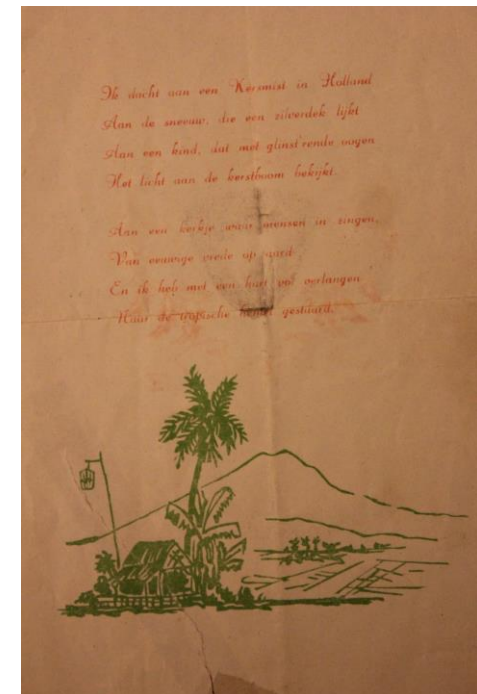 Ik dacht aan een Kersmist in Holland
Aan de sneeuw, die een zilverdek lijkt
Aan een kind, dat met glinst'rende oogen
Het licht aan de kerstboom bekijkt.
Aan een kerkje waar mensen in zingen,
Van eeuwige vrede op aard
En ik heb met een hart vol verlangen
Naar de tropische hemel gestaard.